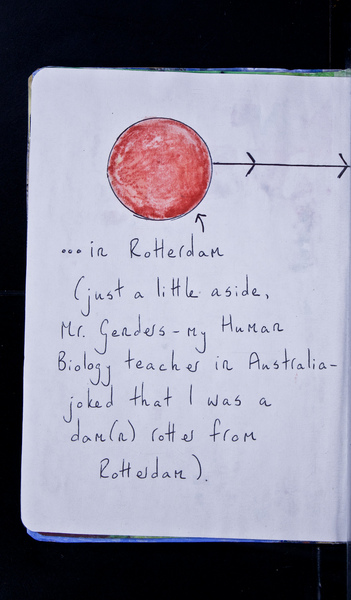 ...in Rotterdam
(just a little aside,
Mr. Genders - my Human
Biology teacher in Australia -
joked that I was a
dam(n) rotter from
Rotterdam).